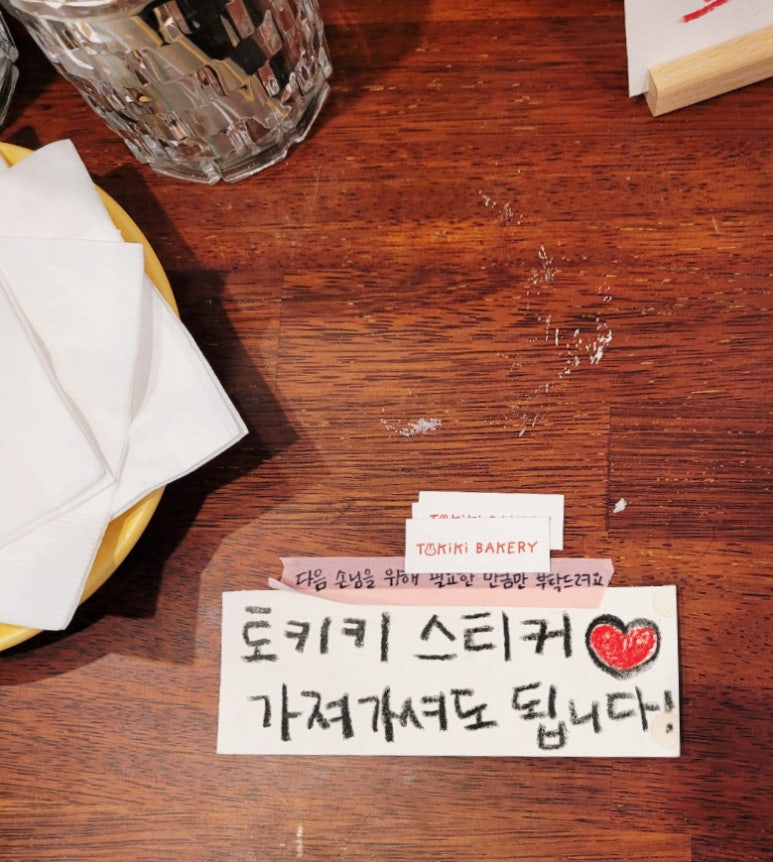 TOKIKI BAKERY
TOKIKI BAKERY
다음 손님을 위해 필요한 만큼만 부탁드려요
토키키 스티커
가져가셔도 됩니다!